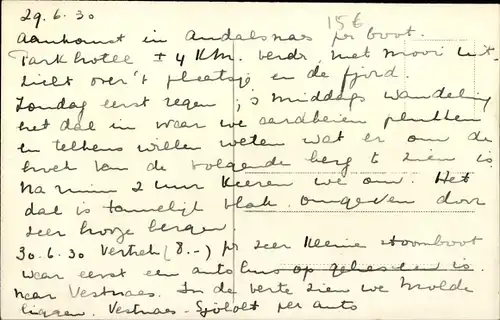 29.6.30
15€
Aankomst in Andalsnaes per boot.
Parkhotel ± 4 KM. verder, met mooi uit-
zicht over 't plaatsje en de fjord.
Zondag eerst regen; 's middags wandeling
het dal in waar we aardbeien plukken
en telkens willen weten wat er om de
hoek van de volgende berg te zien is
Na ruim 2 uur keeren we om. Het
dal is tamelijk vlak omgeven door
zeer hooge bergen.
30.6.30 Vertrek (8.–) per zeer kleine stoomboot
waar eerst een autobus op geheschen is
naar Vestnaes. In de verte zien we Molde
liggen. Vestnaes - Sjöholt per auto